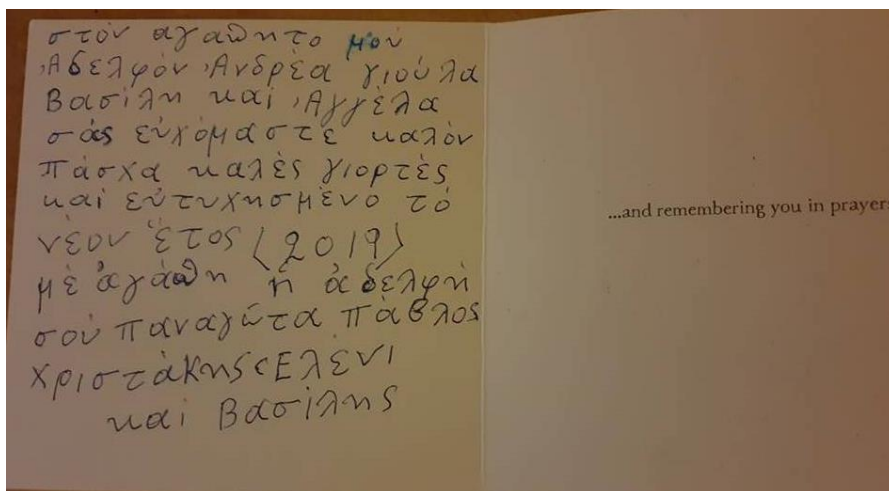 στόν αγαπητο μού
Ἀδελφόν Ἀνδρέα γιούλα
Βασίλη καί Ἀγγέλα
σάς εὐχόμαστε καλόν
πάσχα καλές γιορτές
καί εὐτυχησμένο τό
νέον ἔτος (2019)
μέ ἀγάπη ἡ ἀδελφή
σού παναγῶτα πάβλος
χριστάκης Ἐλένι
καί Βασίλης
...and remembering you in prayer